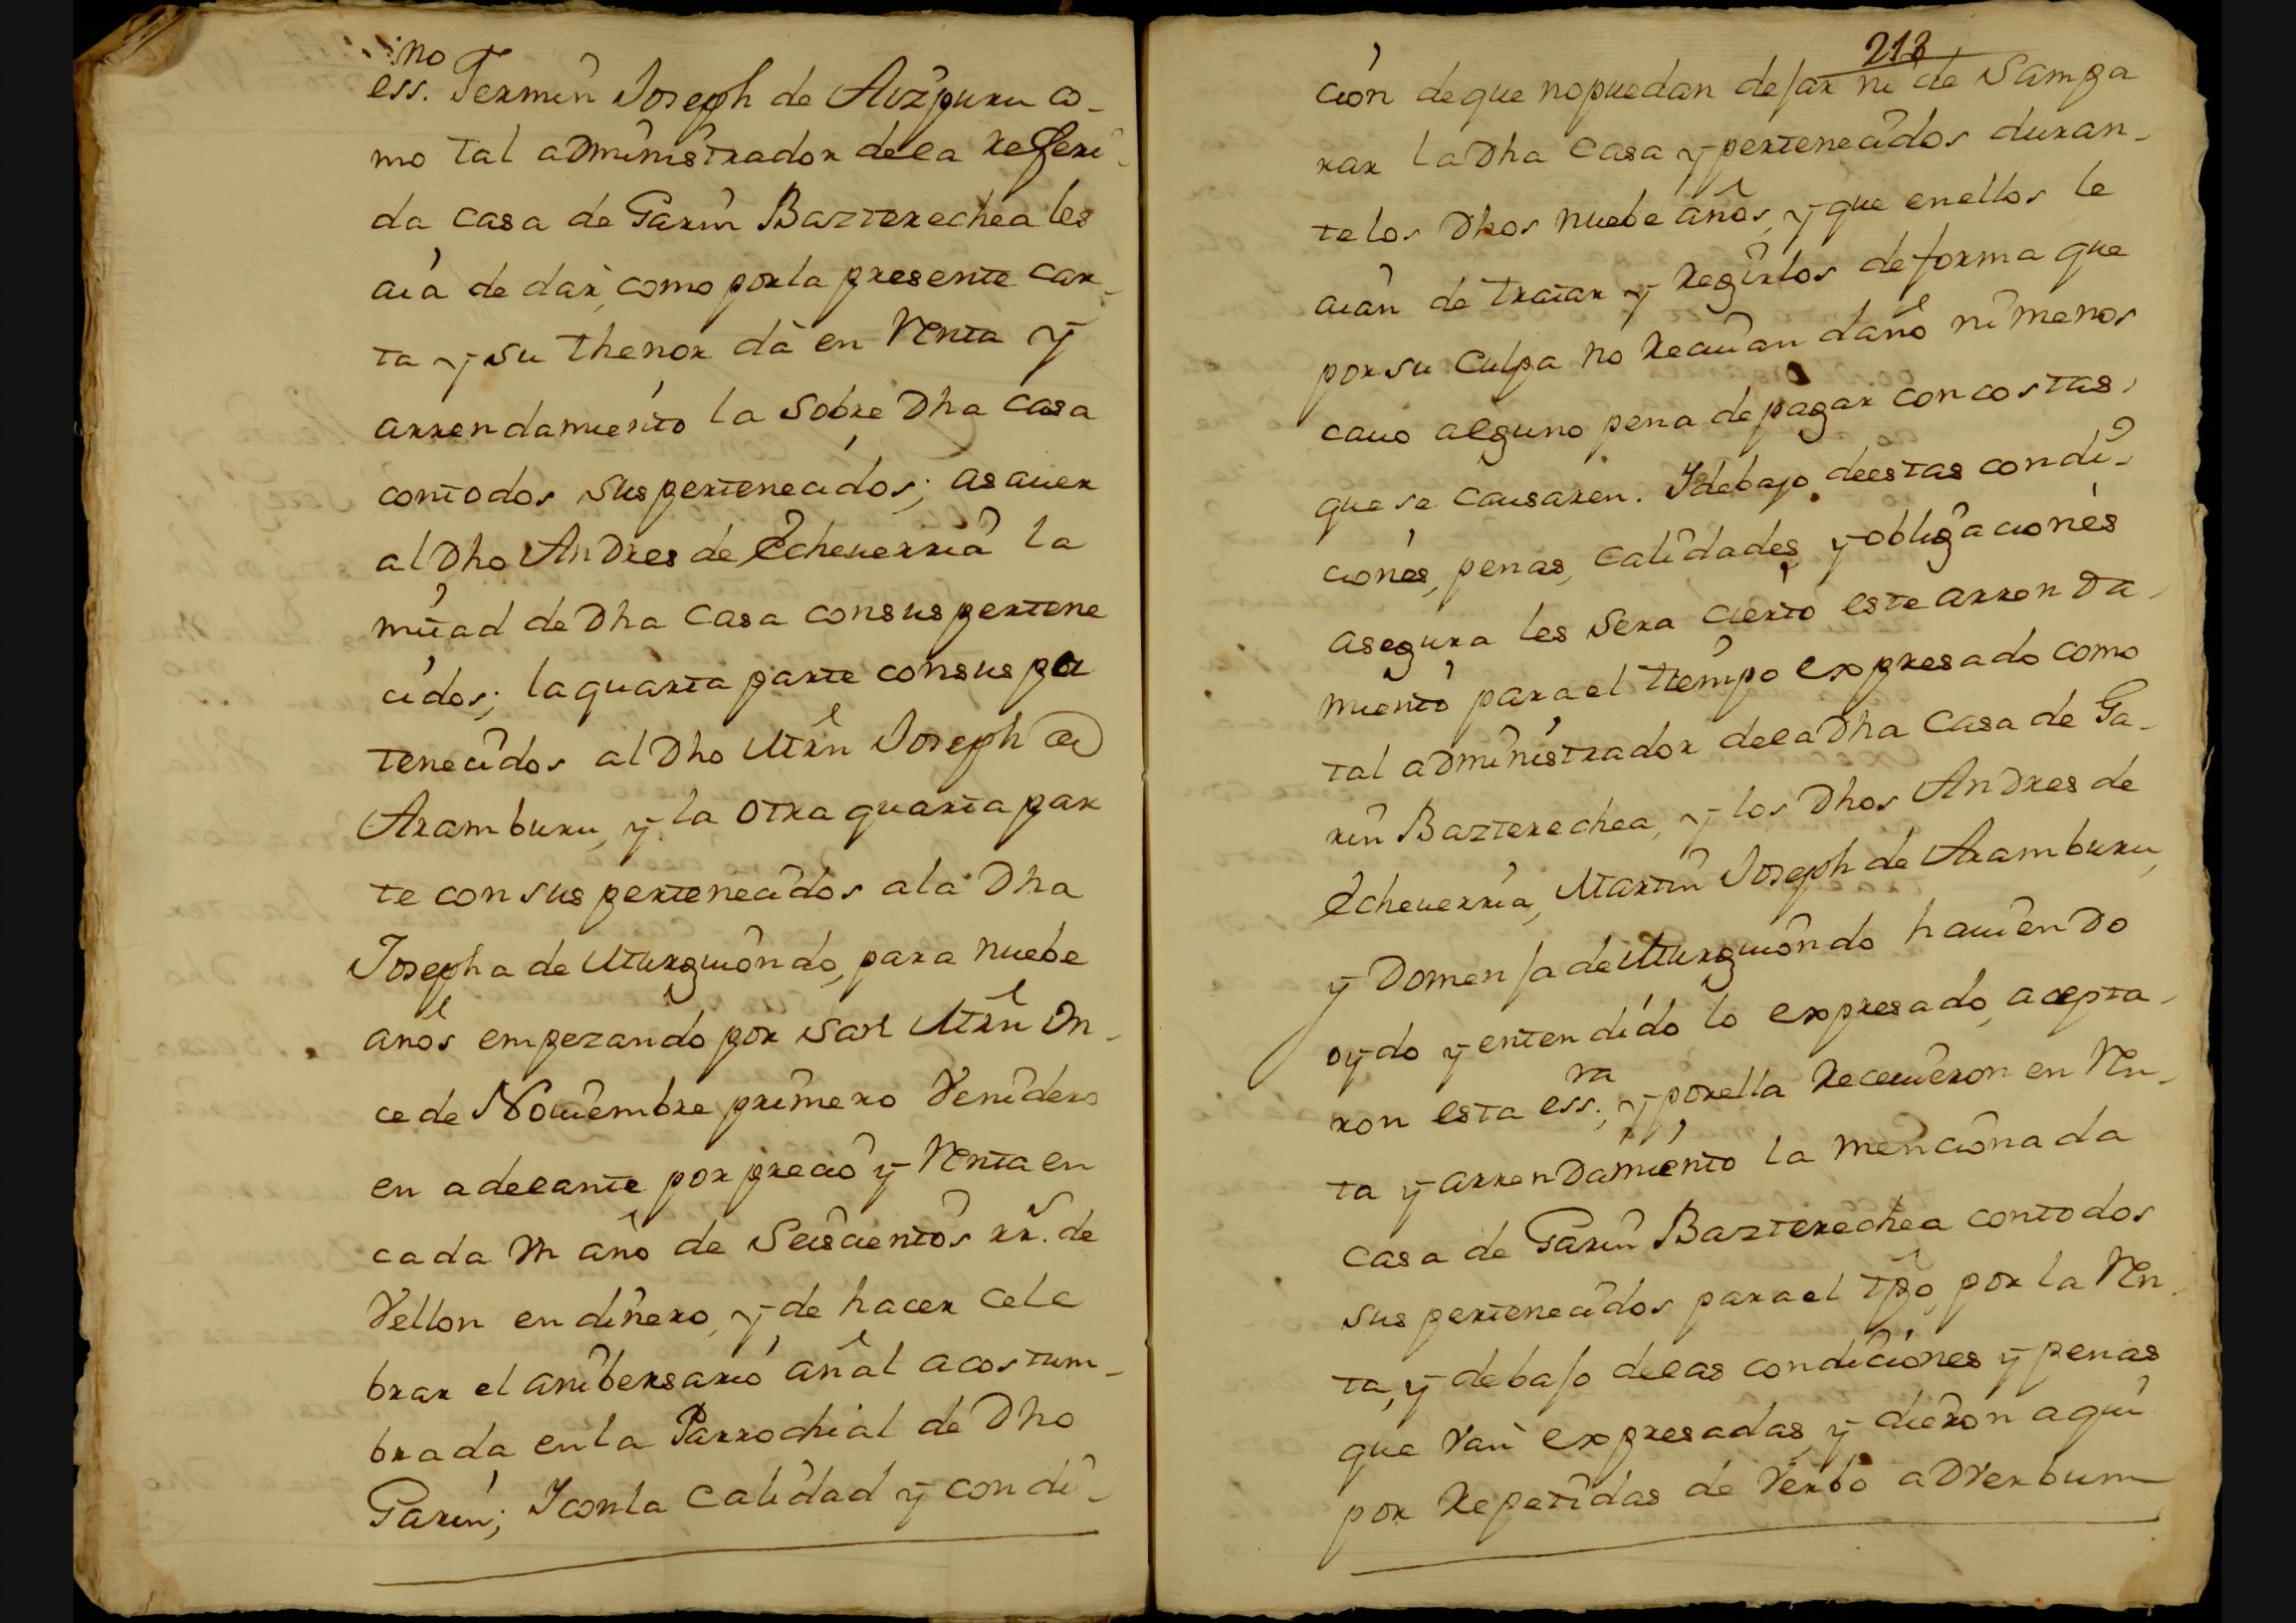 ess.no Fermin Joseph de Aizpuru co-
mo tal administrador dela referi-
da casa de Garin Bazterechea les
avia de dar, como por la presente car-
ta y su thenor dà en Renta y
arrendamiento la sobre Dha casa
contodos sus pertenecidos; asaver
al Dho Andres de Echeverria la
mitad de Dha Casa consus pertene
cidos; la quarta parte consus per
tenecidos al Dho Mrñ Joseph de
Aramburu, y la otra quarta par
te con sus pertenecidos ala Dha
Josepha de Murguiondo, para nuebe
años empezando por San Mrñ On-
ce de Noviembre primero Venidero
en adelante por precio y Renta en
cada Vn año de Seiscientos rr.s de
Vellon en dinero, y de hacer cele
brar el anibersario añal acostum-
brada enla Parrochial de Dho
Garin; Y conla Calidad y condi-
213
cion deque nopuedan dejar ni desampa
rar la Dha casa y pertenecidos duran-
telos Dhos nuebe años, y que enellos le
aian de tratar y Regirlos deforma que
por su Culpa no Recivan daño ni menos
cavo alguno pena depagar concostas,
que se causaren. Y debajo deestas condi-
ciones, penas, calidades, y obligaciones
asegura les sera cierto este arrenda-
miento para el tiempo expresado como
tal administrador dela Dha Casa de Ga-
rin Bazterechea, y los Dhos Andres de
Echeverria, Martin Joseph de Aramburu,
y Domenja de Murguiondo haviendo
oydo y entendido lo expresado, acepta-
ron esta ess.ra, y porella Recevieron en Ren-
ta y arrendamiento la mencionada
casa de Garin Bazterechea contodos
sus pertenecidos para el tp̃o, por la Ren-
ta, y debajo delas condiciones y penas
que van expresadas, y dieron aqui
por Repetidas de Verbo adVerbum